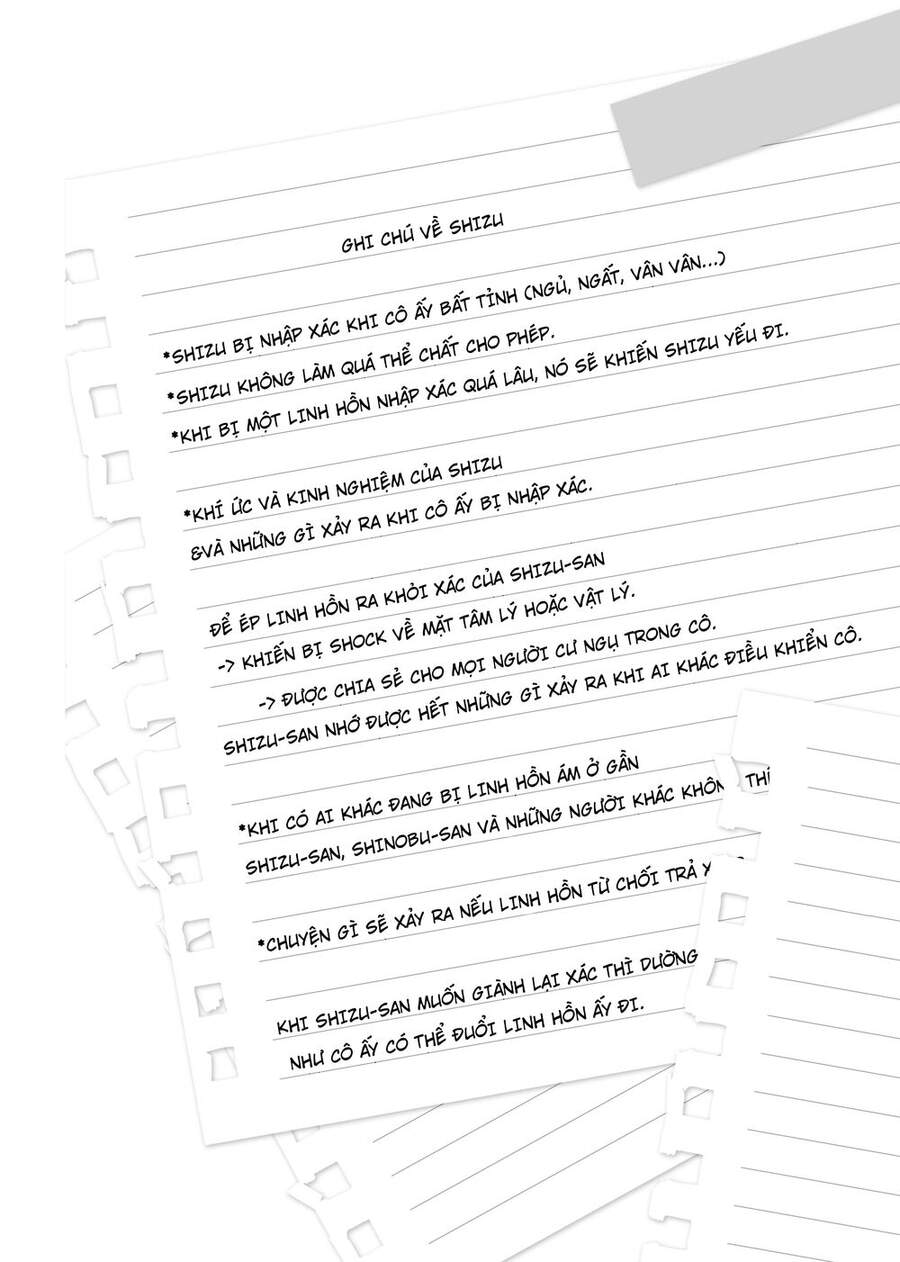 GHI CHÚ VỀ SHIZU
*SHIZU BỊ NHẬP XÁC KHI CÔ ẤY BẤT TỈNH (NGỦ, NGẤT, VÂN VÂN...)
*SHIZU KHÔNG LÀM QUÁ THỂ CHẤT CHO PHÉP.
*KHI BỊ MỘT LINH HỒN NHẬP XÁC QUÁ LÂU, NÓ SẼ KHIẾN SHIZU YẾU ĐI.
*KHÍ ỨC VÀ KINH NGHIỆM CỦA SHIZU
&VÀ NHỮNG GÌ XẢY RA KHI CÔ ẤY BỊ NHẬP XÁC.
ĐỂ ÉP LINH HỒN RA KHỎI XÁC CỦA SHIZU-SAN
-> KHIẾN BỊ SHOCK VỀ MẶT TÂM LÝ HOẶC VẬT LÝ.
-> ĐƯỢC CHIA SẺ CHO MỌI NGƯỜI CƯ NGỤ TRONG CÔ.
SHIZU-SAN NHỚ ĐƯỢC HẾT NHỮNG GÌ XẢY RA KHI AI KHÁC ĐIỀU KHIỂN CÔ.
*KHI CÓ AI KHÁC ĐANG BỊ LINH HỒN ÁM Ở GẦN
SHIZU-SAN, SHINOBU-SAN VÀ NHỮNG NGƯỜI KHÁC
*CHUYỆN GÌ SẼ XẢY RA NẾU LINH HỒN TỪ CHỐI TRẢ
KHI SHIZU-SAN MUỐN GIÀNH LẠI XÁC THÌ DƯỜNG
NHƯ CÔ ẤY CÓ THỂ ĐUỔI LINH HỒN ẤY ĐI.